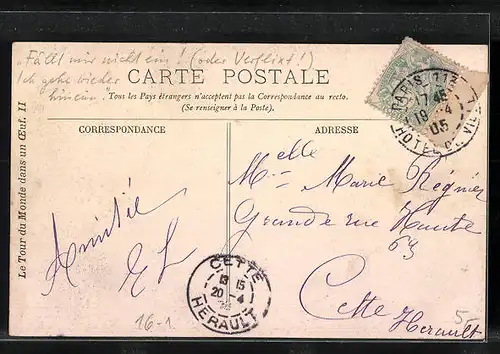 "Fällt mir nicht ein! (oder Verflixt!)
Ich gehe wieder
hinein."
CARTE POSTALE
Tous les Pays étrangers n'acceptent pas la Correspondance au recto.
(Se renseigner à la Poste).
CORRESPONDANCE
ADRESSE
PARIS 113
17 45
19 - 4
05
HOTEL DE VILLE
Le Tour du Monde dans un Œuf. II
Amitié
EL
Melle Marie Régnier
Grande rue Haute
63
Cette
Herault
CETTE
13 15
20 4
HERAULT
16-1
5-